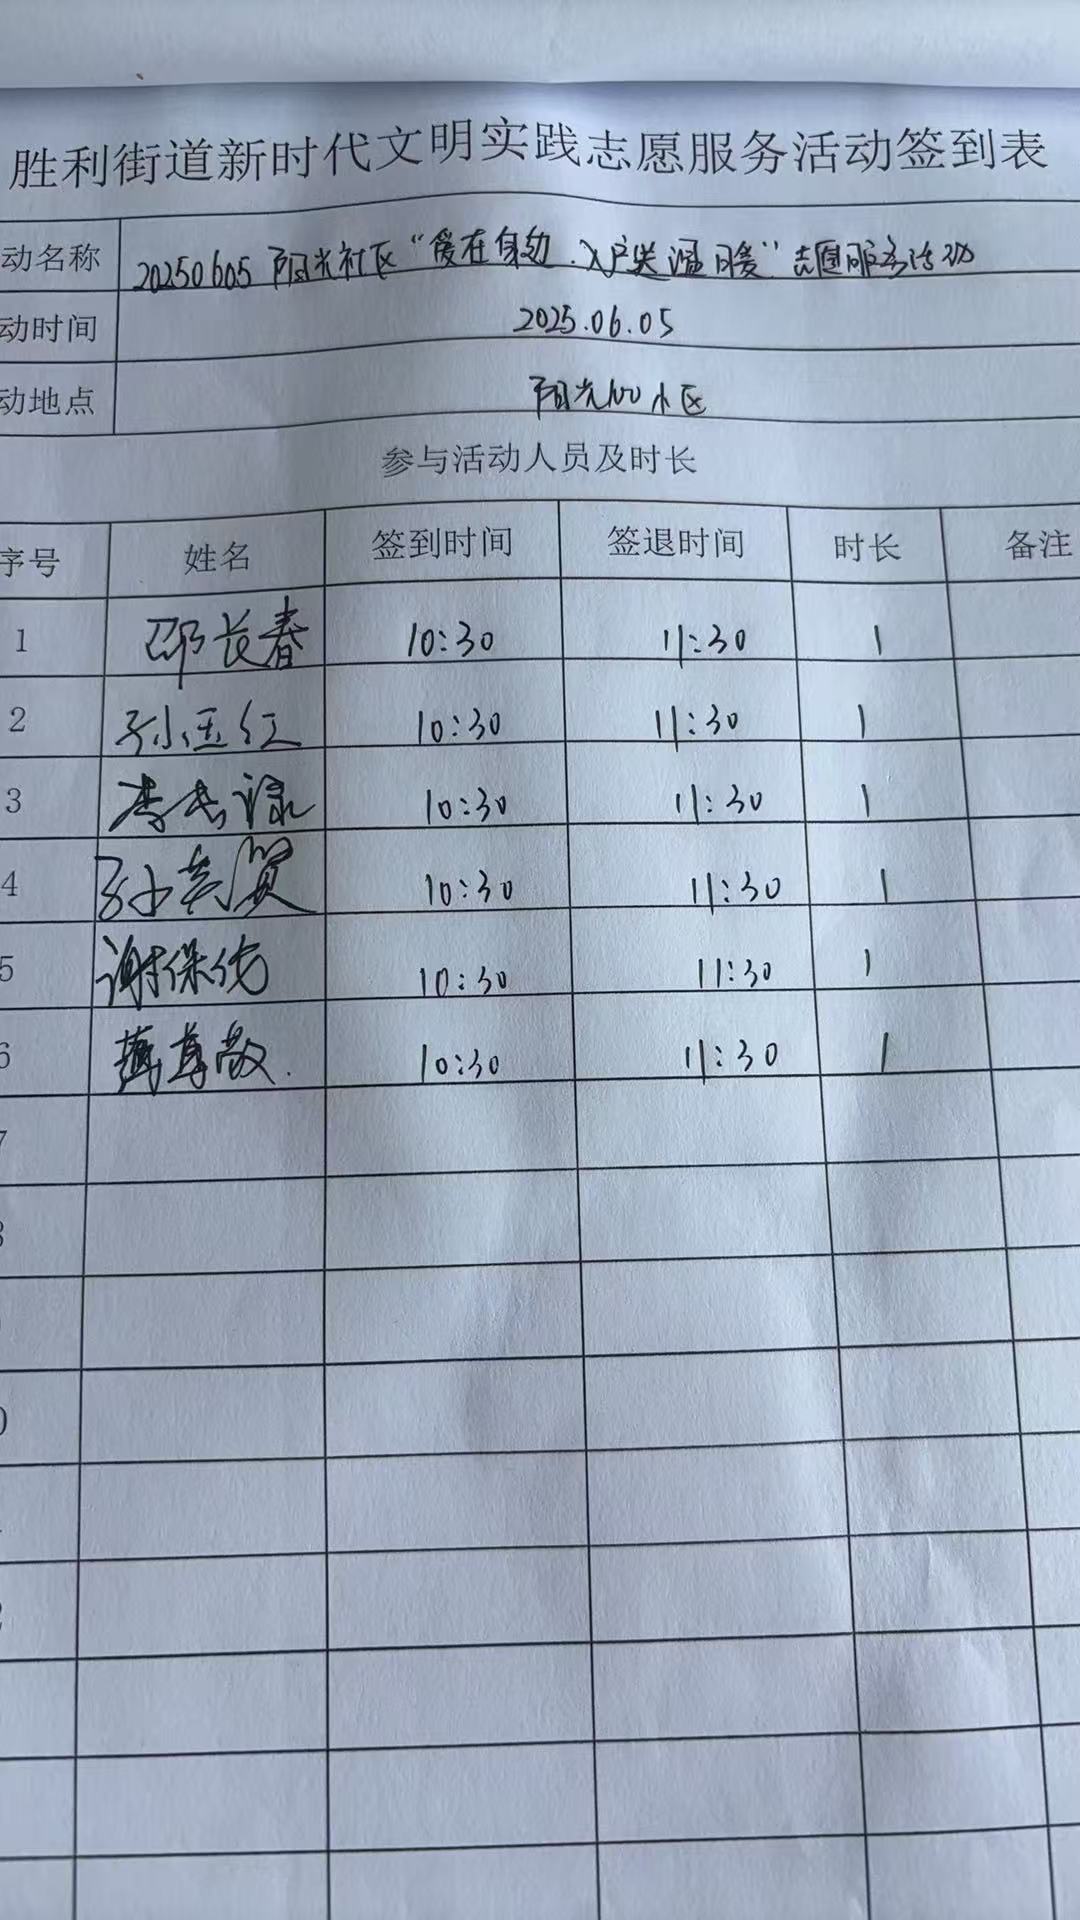 胜利街道新时代文明实践志愿服务活动签到表
动名称 20250605 阳光社区“爱在身边.入户送温暖”志愿服务活动
动时间 2025.06.05
动地点 阳光100小区
参与活动人员及时长
序号 姓名 签到时间 签退时间 时长 备注
1 邵长春 10:30 11:30 1
2 孙玉红 10:30 11:30 1
3 李志禄 10:30 11:30 1
4 孙英贤 10:30 11:30 1
5 谢保优 10:30 11:30 1
6 10:30 11:30 1
7
8
0
2